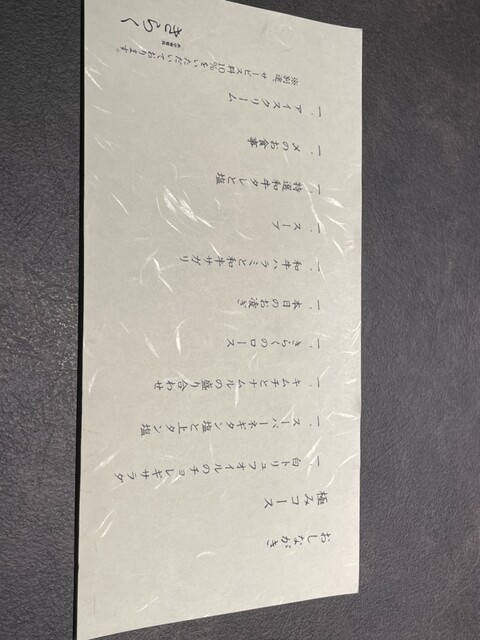 おしながき
極みコース
一．白トリュフオイルのチョレギサラダ
一．スーパーネギタン塩と上タン塩
一．キムチとナムルの盛り合わせ
一．きらくのロース
一．本日のお凌ぎ
一．和牛ハラミと和牛サガリ
一．スープ
一．特選和牛タレと塩
一．〆のお食事
一．アイスクリーム
※別途、サービス料10%をいただいております。
きらく